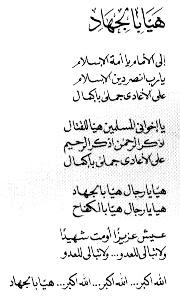 هيا بالجهاد
إلى الأمام يا أمة الإسلام
يا رب انصر دين الإسلام
على الأعادي جملتي بإكمال
يا إخواني المسلمين هيا للقتال
اذكر الرحمن اذكر الرحيم
على الأعادي جملتي بإكمال
هيا يا رجال هيا بالجهاد
هيا يا رجال هيا بالكفاح
عيش عزيزًا أو مت شهيدًا
ولا تبالى للعدو... ولا تبالى للعدو
الله اكبر... الله اكبر... الله اكبر... هيا بالجهاد